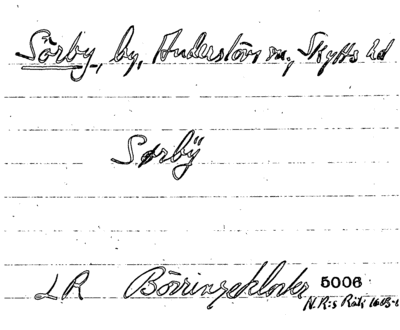 Sörby, by, Anderslövs sn, Skytts hd
Sørbÿ
LR Börringekloster 5006
N.R:s Räk